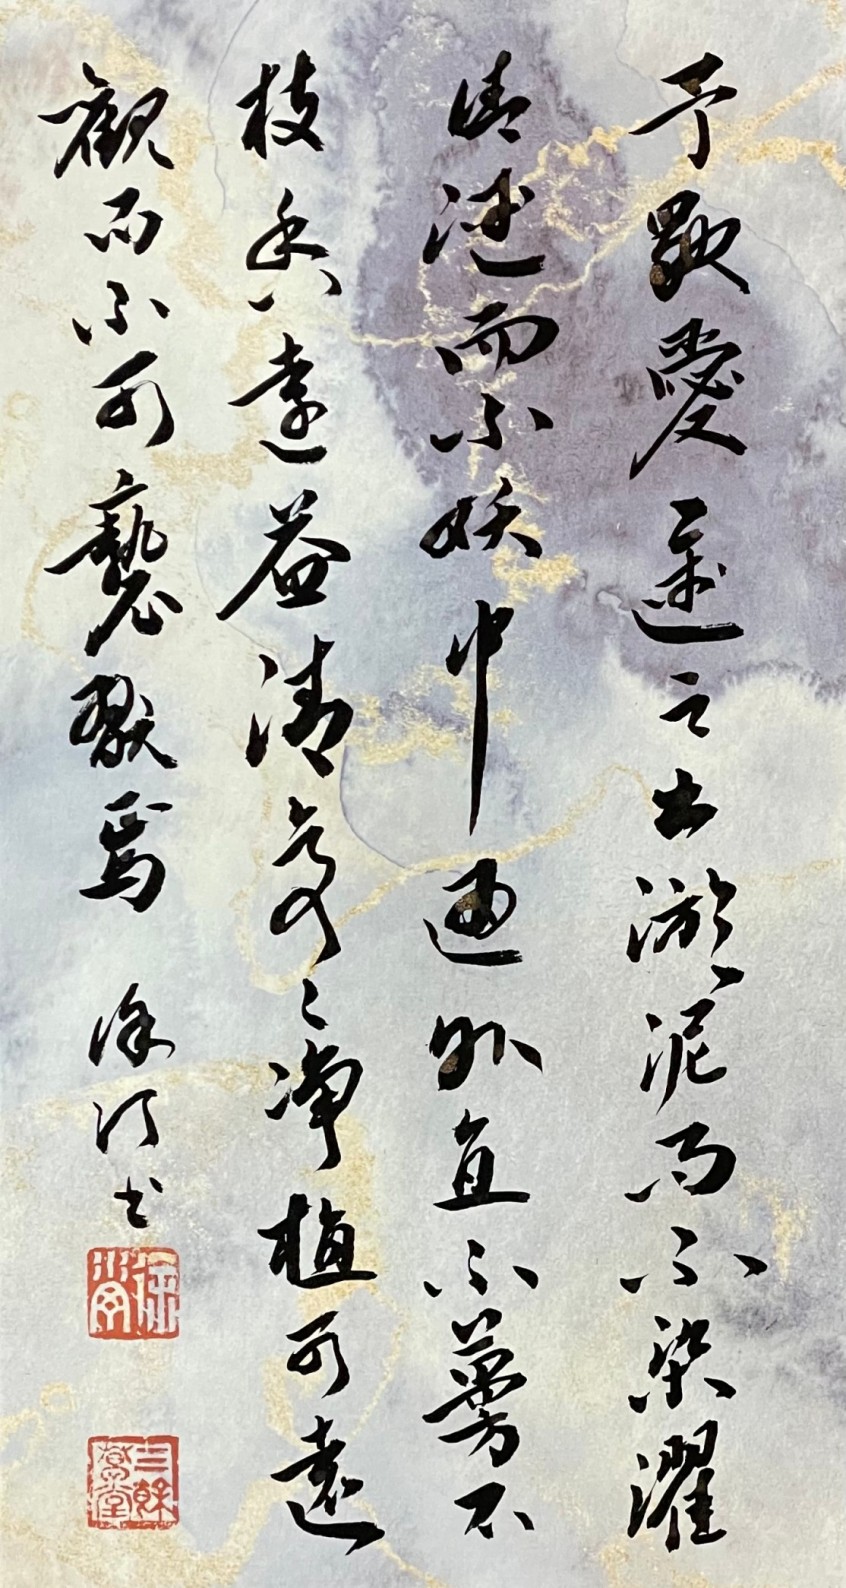 予獨愛蓮之出淤泥而不染濯
清漣而不妖中通外直不蔓不
枝香遠益清亭〻淨植可遠
觀而不可褻翫焉
徐 书